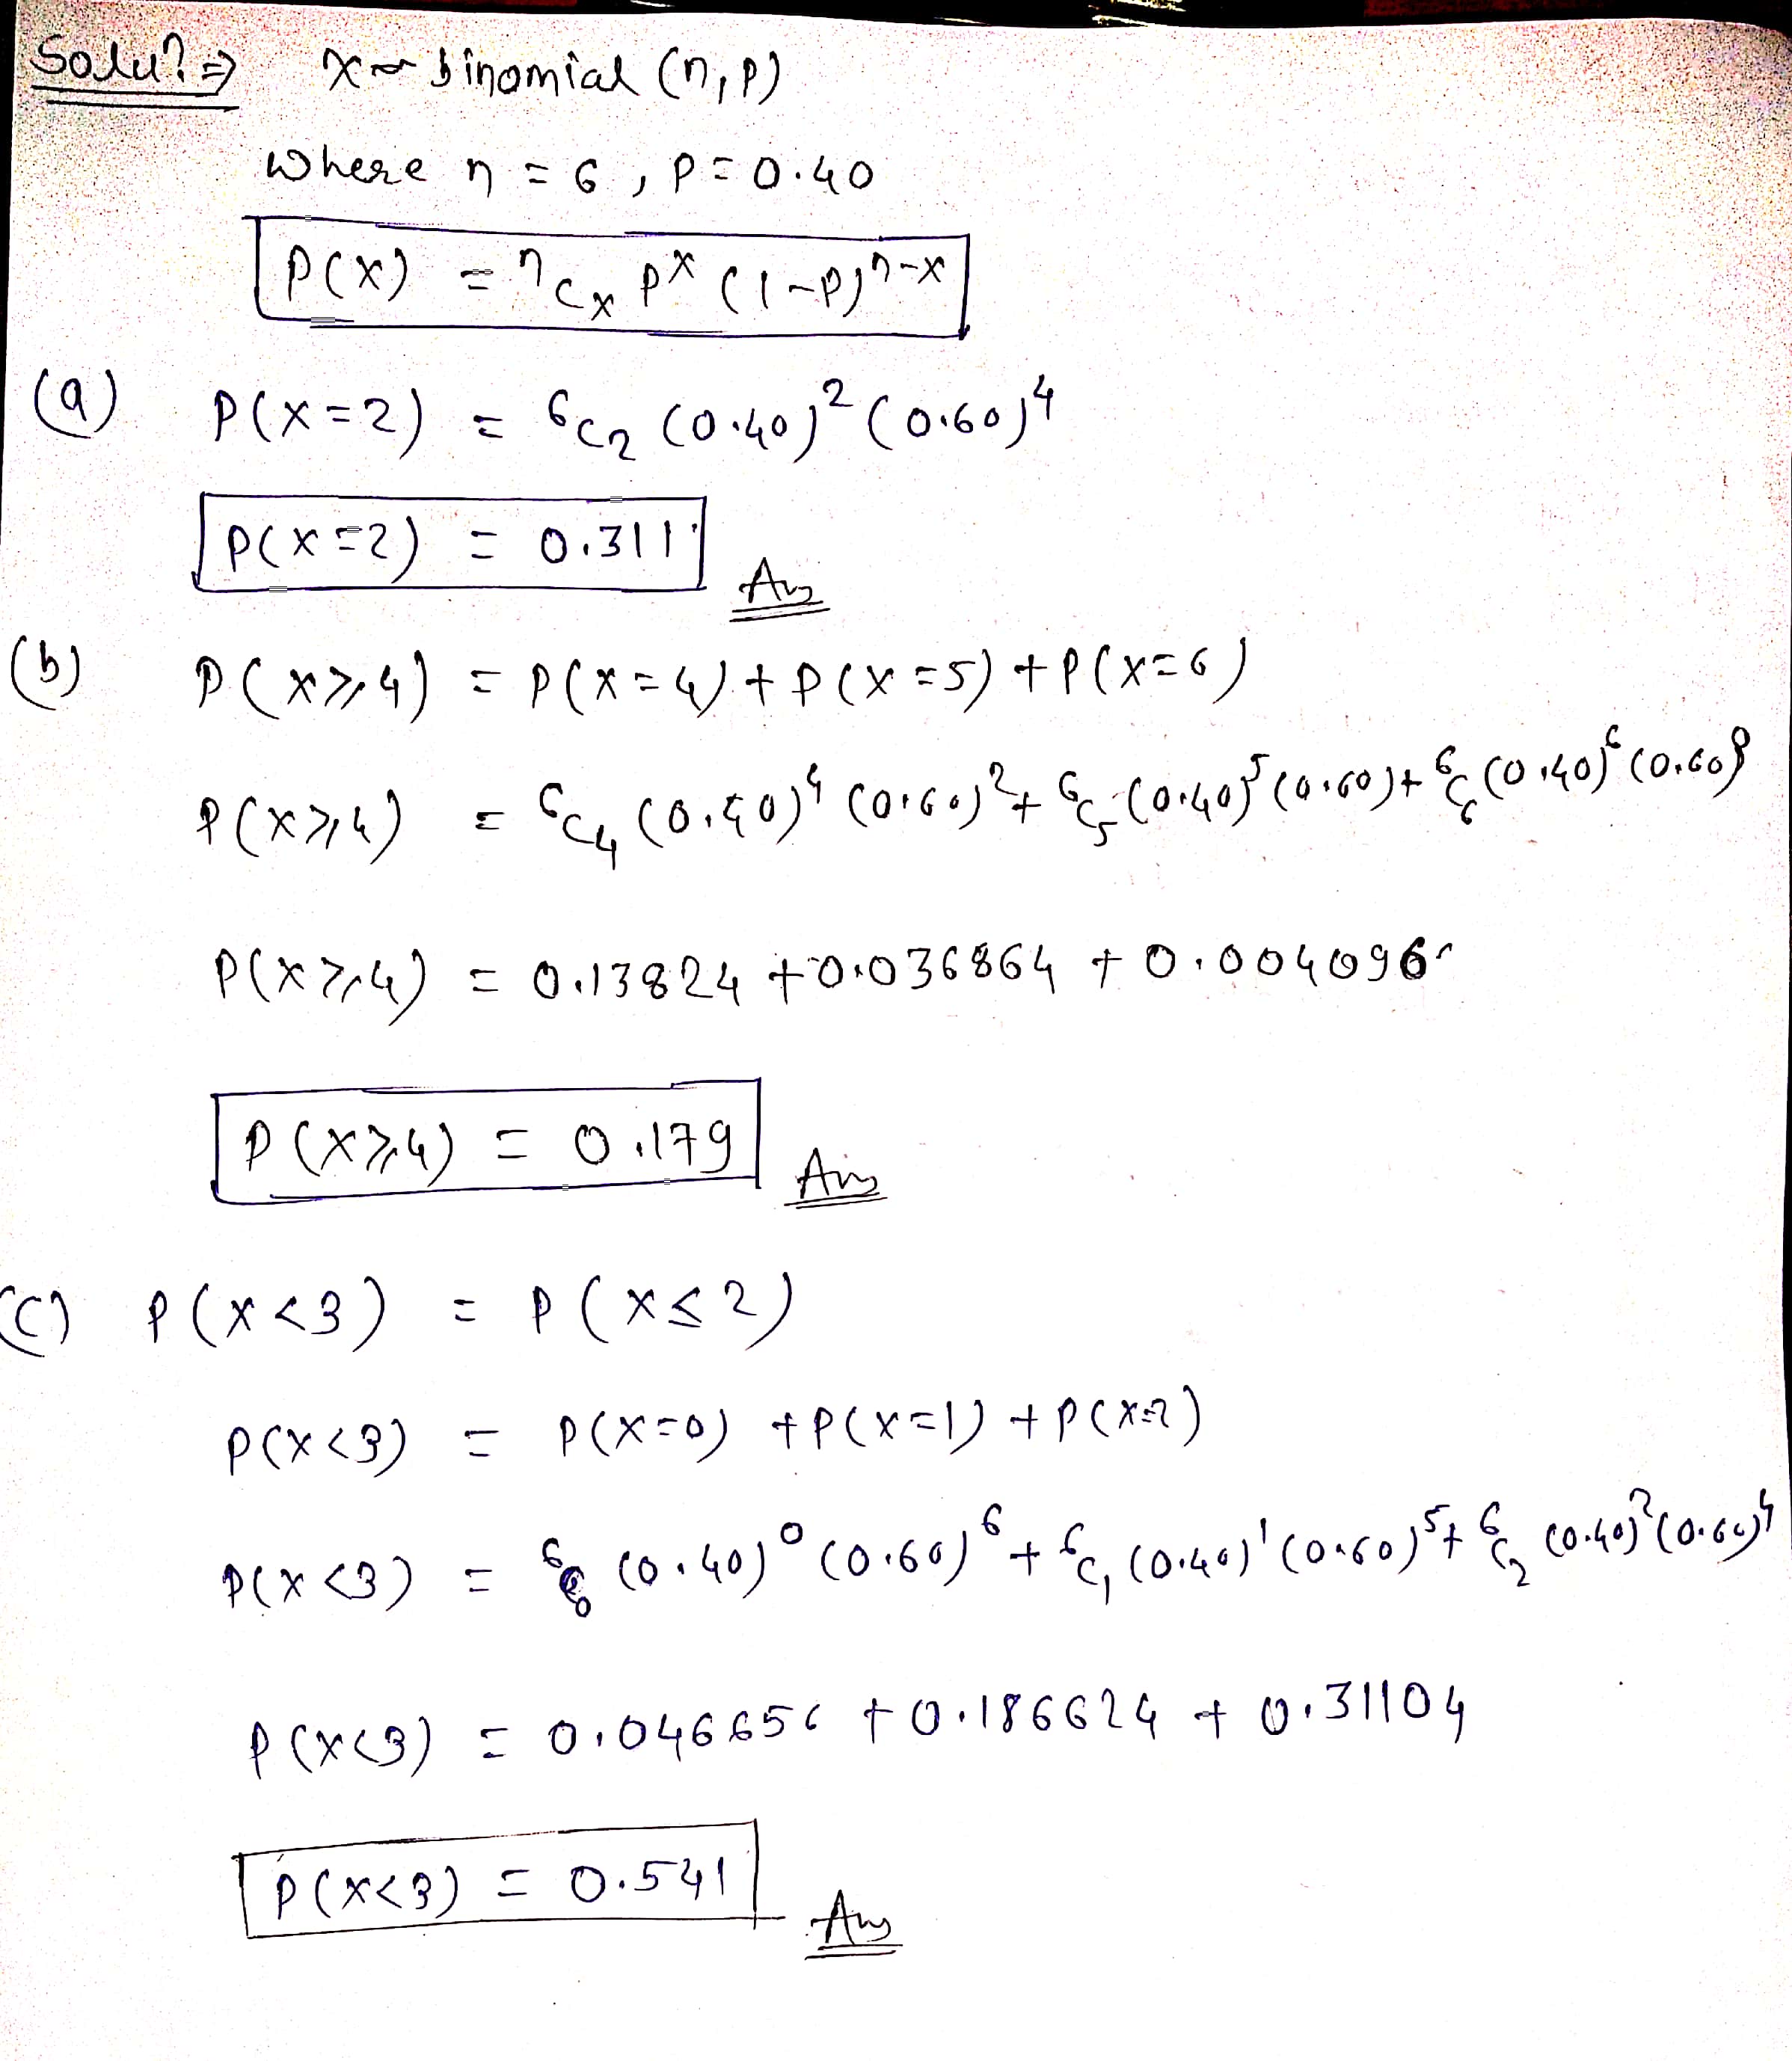 Solu? ⇒ X ~ binomial (n, p)
Where n = 6, P = 0.40
P(X) = ⁿCₓ Pˣ (1-P)ⁿ⁻ˣ
(a) P(X=2) = ⁶C₂ (0.40)² (0.60)⁴
P(X=2) = 0.311
Ans
(b) P(X≥4) = P(X=4) + P(X=5) + P(X=6)
P(X≥4) = ⁶C₄ (0.40)⁴ (0.60)² + ⁶C₅ (0.40)⁵ (0.60) + ⁶C₆ (0.40)⁶ (0.60)⁰
P(X≥4) = 0.13824 + 0.036864 + 0.004096
P(X≥4) = 0.179
Ans
(C) P(X<3) = P(X≤2)
P(X<3) = P(X=0) + P(X=1) + P(X=2)
P(X<3) = ⁶C₀ (0.40)⁰ (0.60)⁶ + ⁶C₁ (0.40)¹ (0.60)⁵ + ⁶C₂ (0.40)² (0.60)⁴
P(X<3) = 0.046656 + 0.186624 + 0.31104
P(X<3) = 0.541
Ans